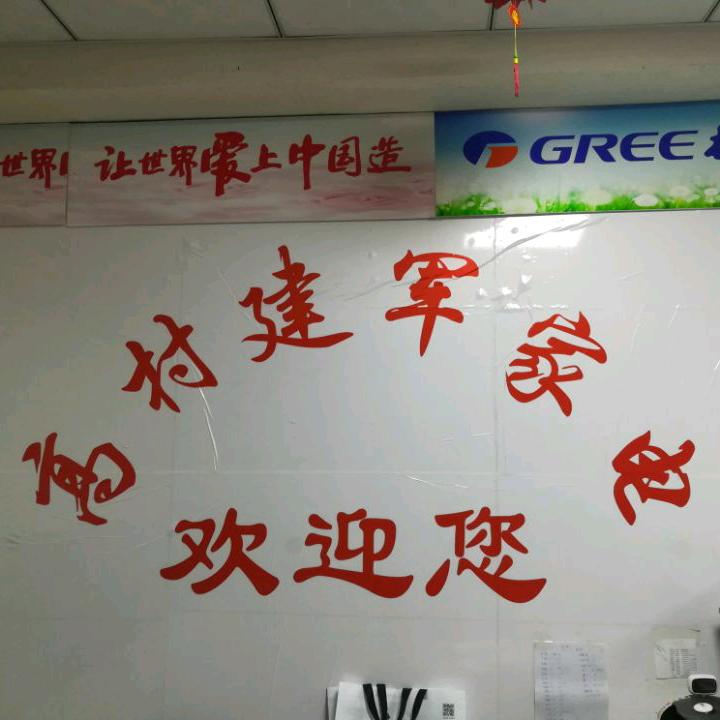 世界
让世界爱上中国造
GREE
高村建军家电
欢迎您